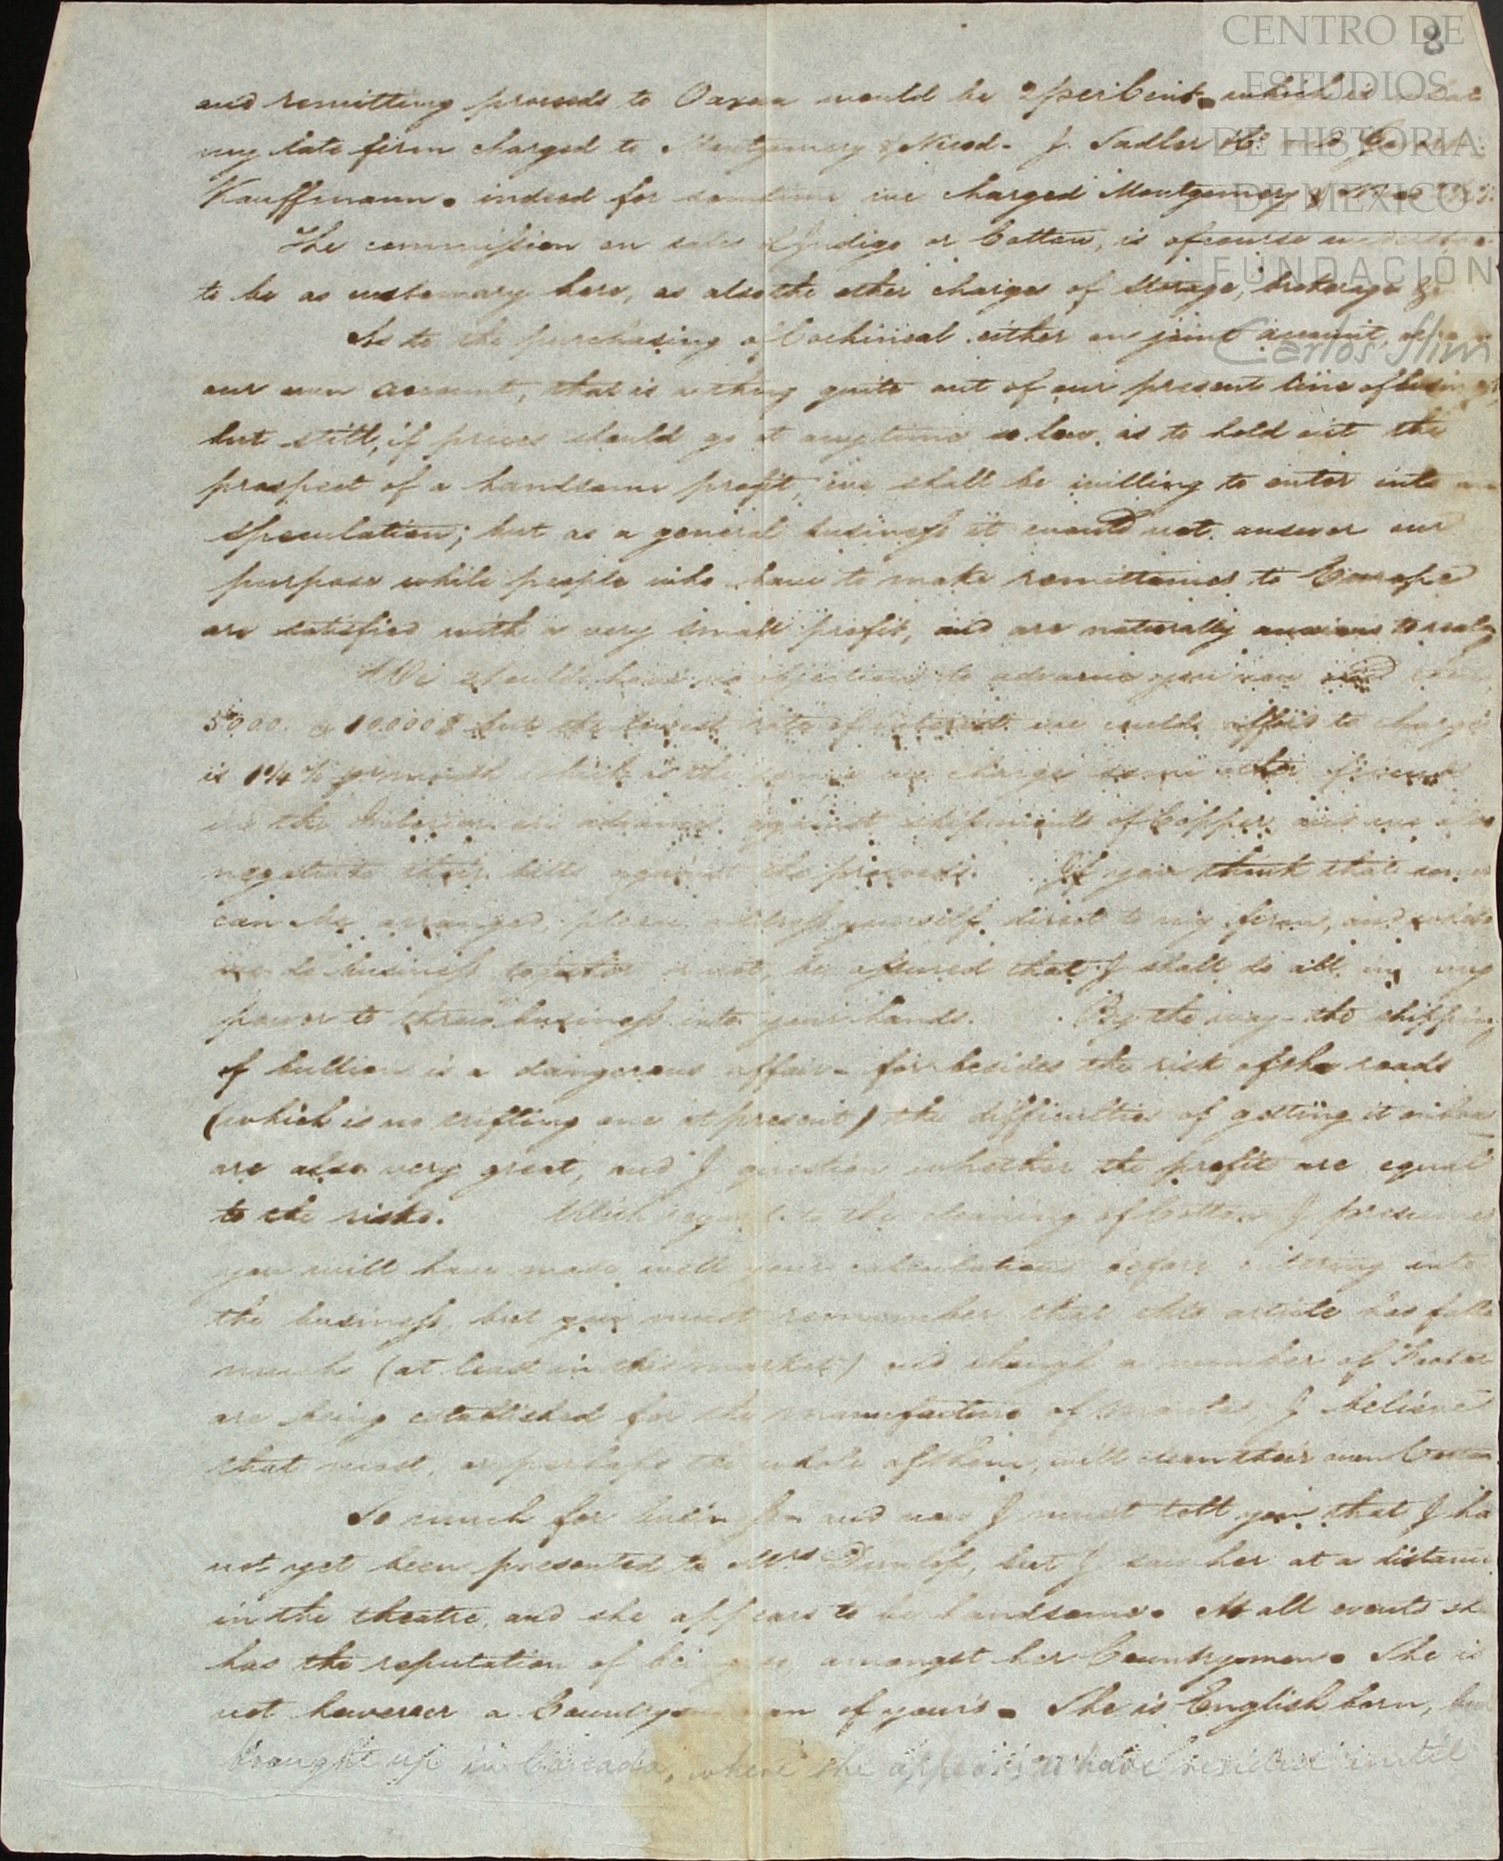 8
CENTRO DE
ESTUDIOS
DE HISTORIA
DE MEXICO
FUNDACIÓN
Carlos Slim
and remitting proceeds to Oaxaca would be 2 per Cent. which is what
my late firm charged to Montgomery & Nicod. J. Sadler
Kauffmann. indeed for sometime we charged Montgomery
The commission on sales of Indigo or Cotton, is of course understood
to be as customary here, as also the other charges of Storage, brokerage &c
As to the purchasing of Cochineal either on joint account, or on
our own account, that is a thing quite out of our present line of business
but still, if prices should go at any time so low as to hold out the
prospect of a handsome profit, we shall be willing to enter into a
speculation; but as a general business it would not answer our
purpose while people who have to make remittances to Europe
are satisfied with a very small profit, and are naturally anxious to realize
We should have no objections to advance you now and
5000 a 10.000$ but the lowest rate of interest we could afford to charge
is 1¼ % per month which is the same we charge some other friends
in the Interior in advances against shipments of Copper and we also
negotiate their bills against the proceeds. If you think that some
can be arranged please address yourself direct to my firm, and whether
we do business together or not, be assured that I shall do all in my
power to throw business into your hands. By the way - the shipping
of bullion is a dangerous affair - for besides the risk of the roads
(which is no trifling one at present) the difficulties of getting it onboard
are also very great, and I question whether the profits are equal
to the risks. With regard to the cleaning of Cotton I presume
you will have made well your calculations before entering into
the business, but you must remember that this article has fallen
much (at least in this market) and though a number of
are being established for the manufacture of mantas I believe
that most, or perhaps the whole of them, will clean their own Cotton
So much for business and now I must tell you that I ha
not yet been presented to Mrs Dunlop, but I saw her at a distance
in the theatre, and she appears to be handsome. At all events she
has the reputation of being so amongst her Countrymen. She is
not however a Countrywoman of yours. She is English born, but
brought up in Canada, where she appears to have resided until